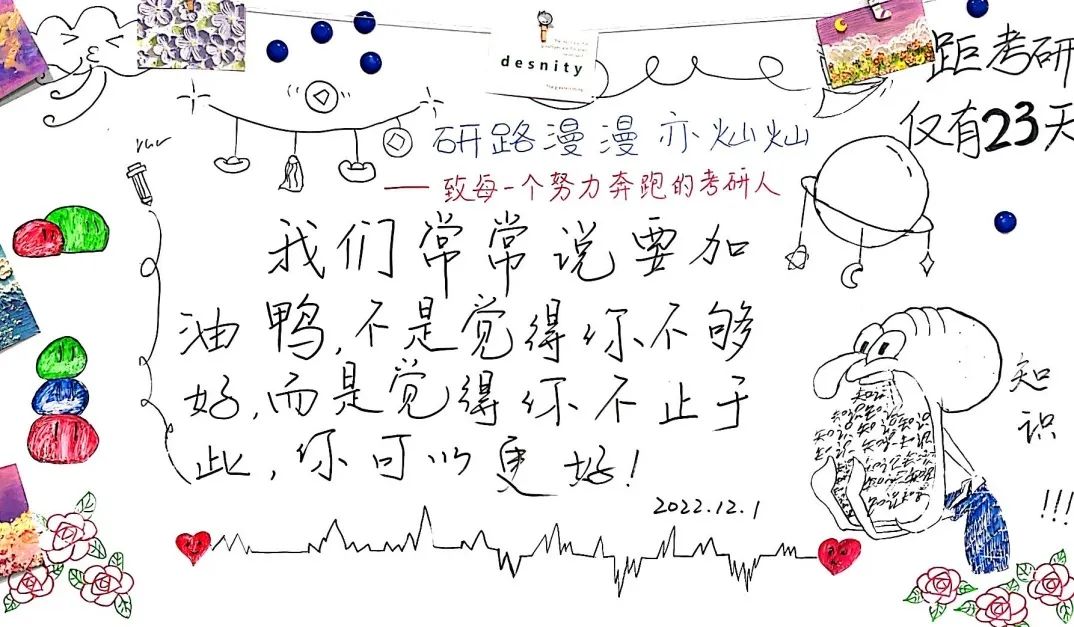 desnity
距考研
仅有23天
研路漫漫亦灿灿
——致每一个努力奔跑的考研人
我们常常说要加
油鸭,不是觉得你不够
好,而是觉得你不止于
此,你可以更好!
2022.12.1
知
识
!!!